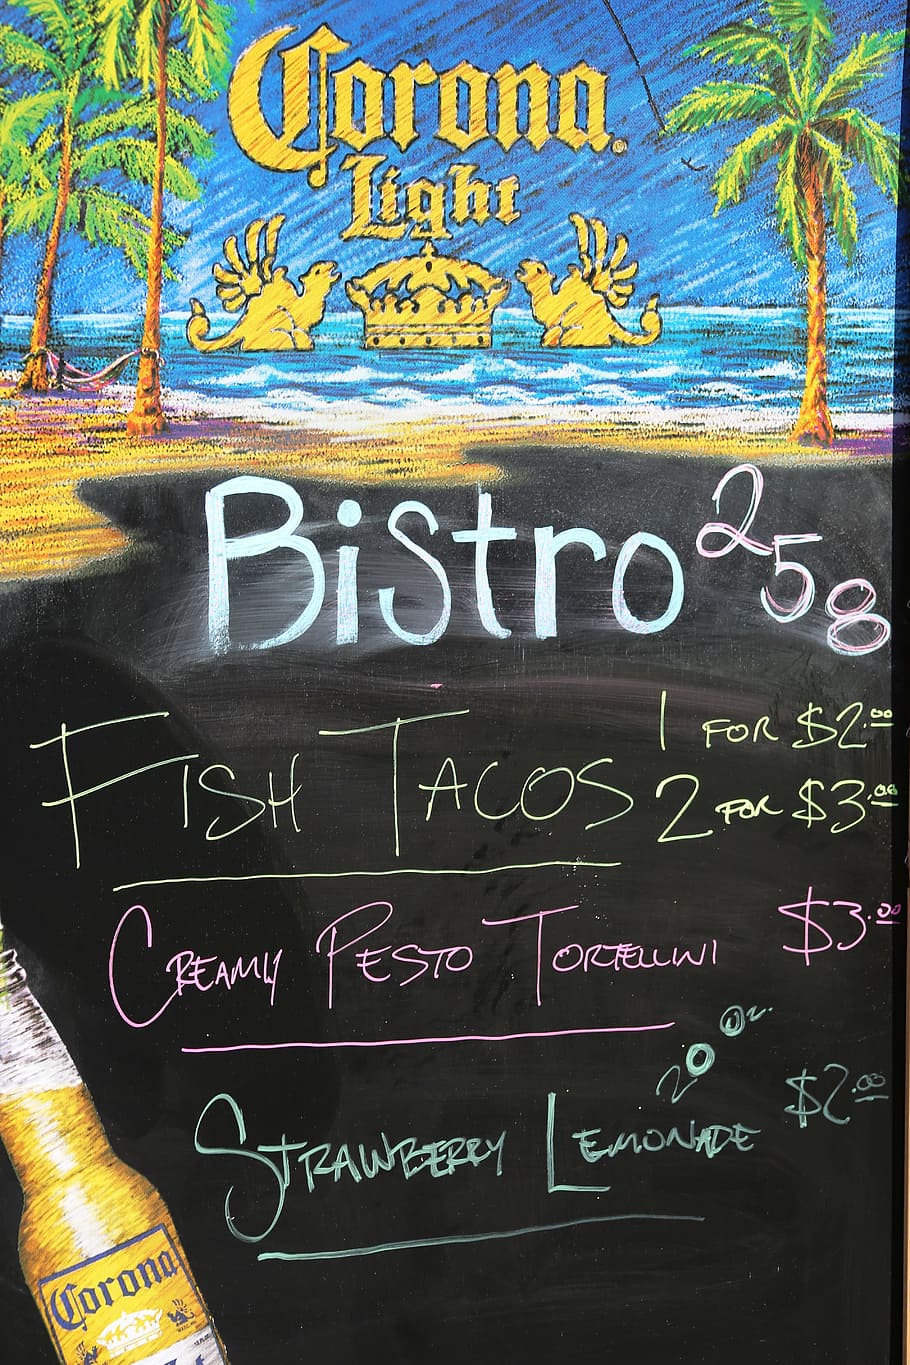 Corona®
Light
Bistro 258
Fish Tacos 1 for $2.00
2 for $3.00
Creamy Pesto Tortellini $3.00
20 oz.
Strawberry Lemonade $2.00
Corona